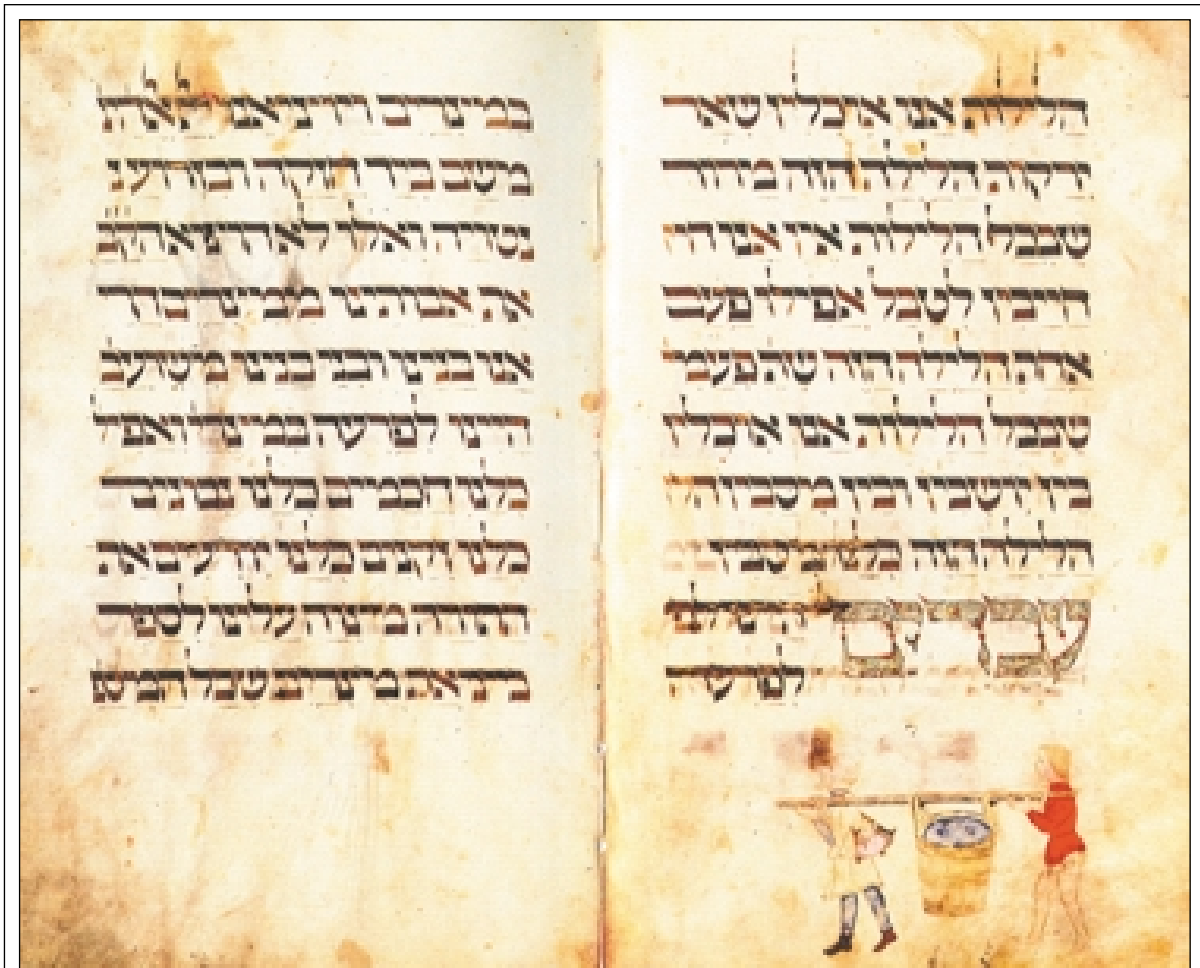 הלילות אנו אוכלין שאר
ירקות הלילה הזה מרור
שבכל הלילות אין אנו
חייבין לטבל אפילו פעם
אחת הלילה הזה
שבכל הלילות אנו אוכלין
בין יושבין ובין מסובין
הלילה הזה כלנו מסובין
עבדים היינו
לפרעה
במצרים ויוציאנו
משם ביד חזקה ובזרוע נ
נטויה ואלו לא הוציא הקב
את אבותינו ממצרים
אנו בנינו ובני בנינו משועב
היינו לפרעה במצרים ואפיל
כלנו חכמים כלנו נבונים
כלנו זקנים כלנו יודעים את
התורה מצוה עלינו לספר
מצרים שכל המספ